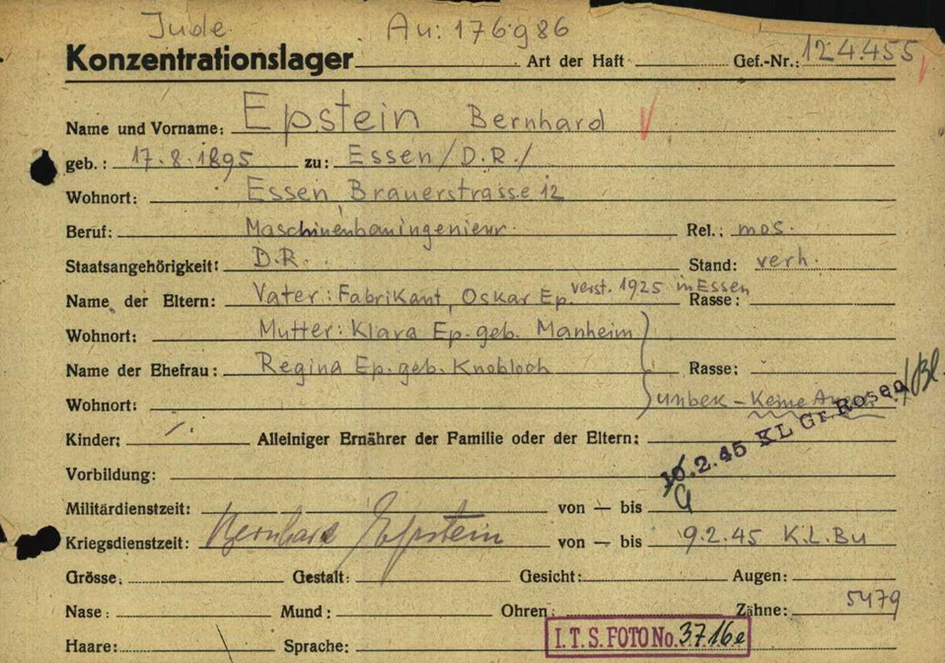 Jude Au: 176986
Konzentrationslager Art der Haft Gef.-Nr.: 124.455
Name und Vorname: Epstein Bernhard
geb.: 17.8.1895 zu: Essen/D.R./
Wohnort: Essen, Brauerstrasse 12
Beruf: Maschinenbauingenieur. Rel.: mos.
Staatsangehörigkeit: D.R. Stand: verh.
Name der Eltern: Vater: Fabrikant, Oskar Ep. verst. 1925 in Essen Rasse:
Wohnort: Mutter: Klara Ep. geb. Manheim
Name der Ehefrau: Regina Ep. geb. Knobloch Rasse:
Wohnort: unbek - Keine
Kinder: Alleiniger Ernährer der Familie oder der Eltern:
.2.45 KL Gr Rosen
Vorbildung:
Militärdienstzeit: von — bis
Kriegsdienstzeit: Bernhard Epstein von — bis 9.2.45 K.L.Bu
Grösse: Gestalt: Gesicht: Augen:
Nase: Mund: Ohren: Zähne: 5479
Haare: Sprache: I.T.S. FOTO No. 3716e